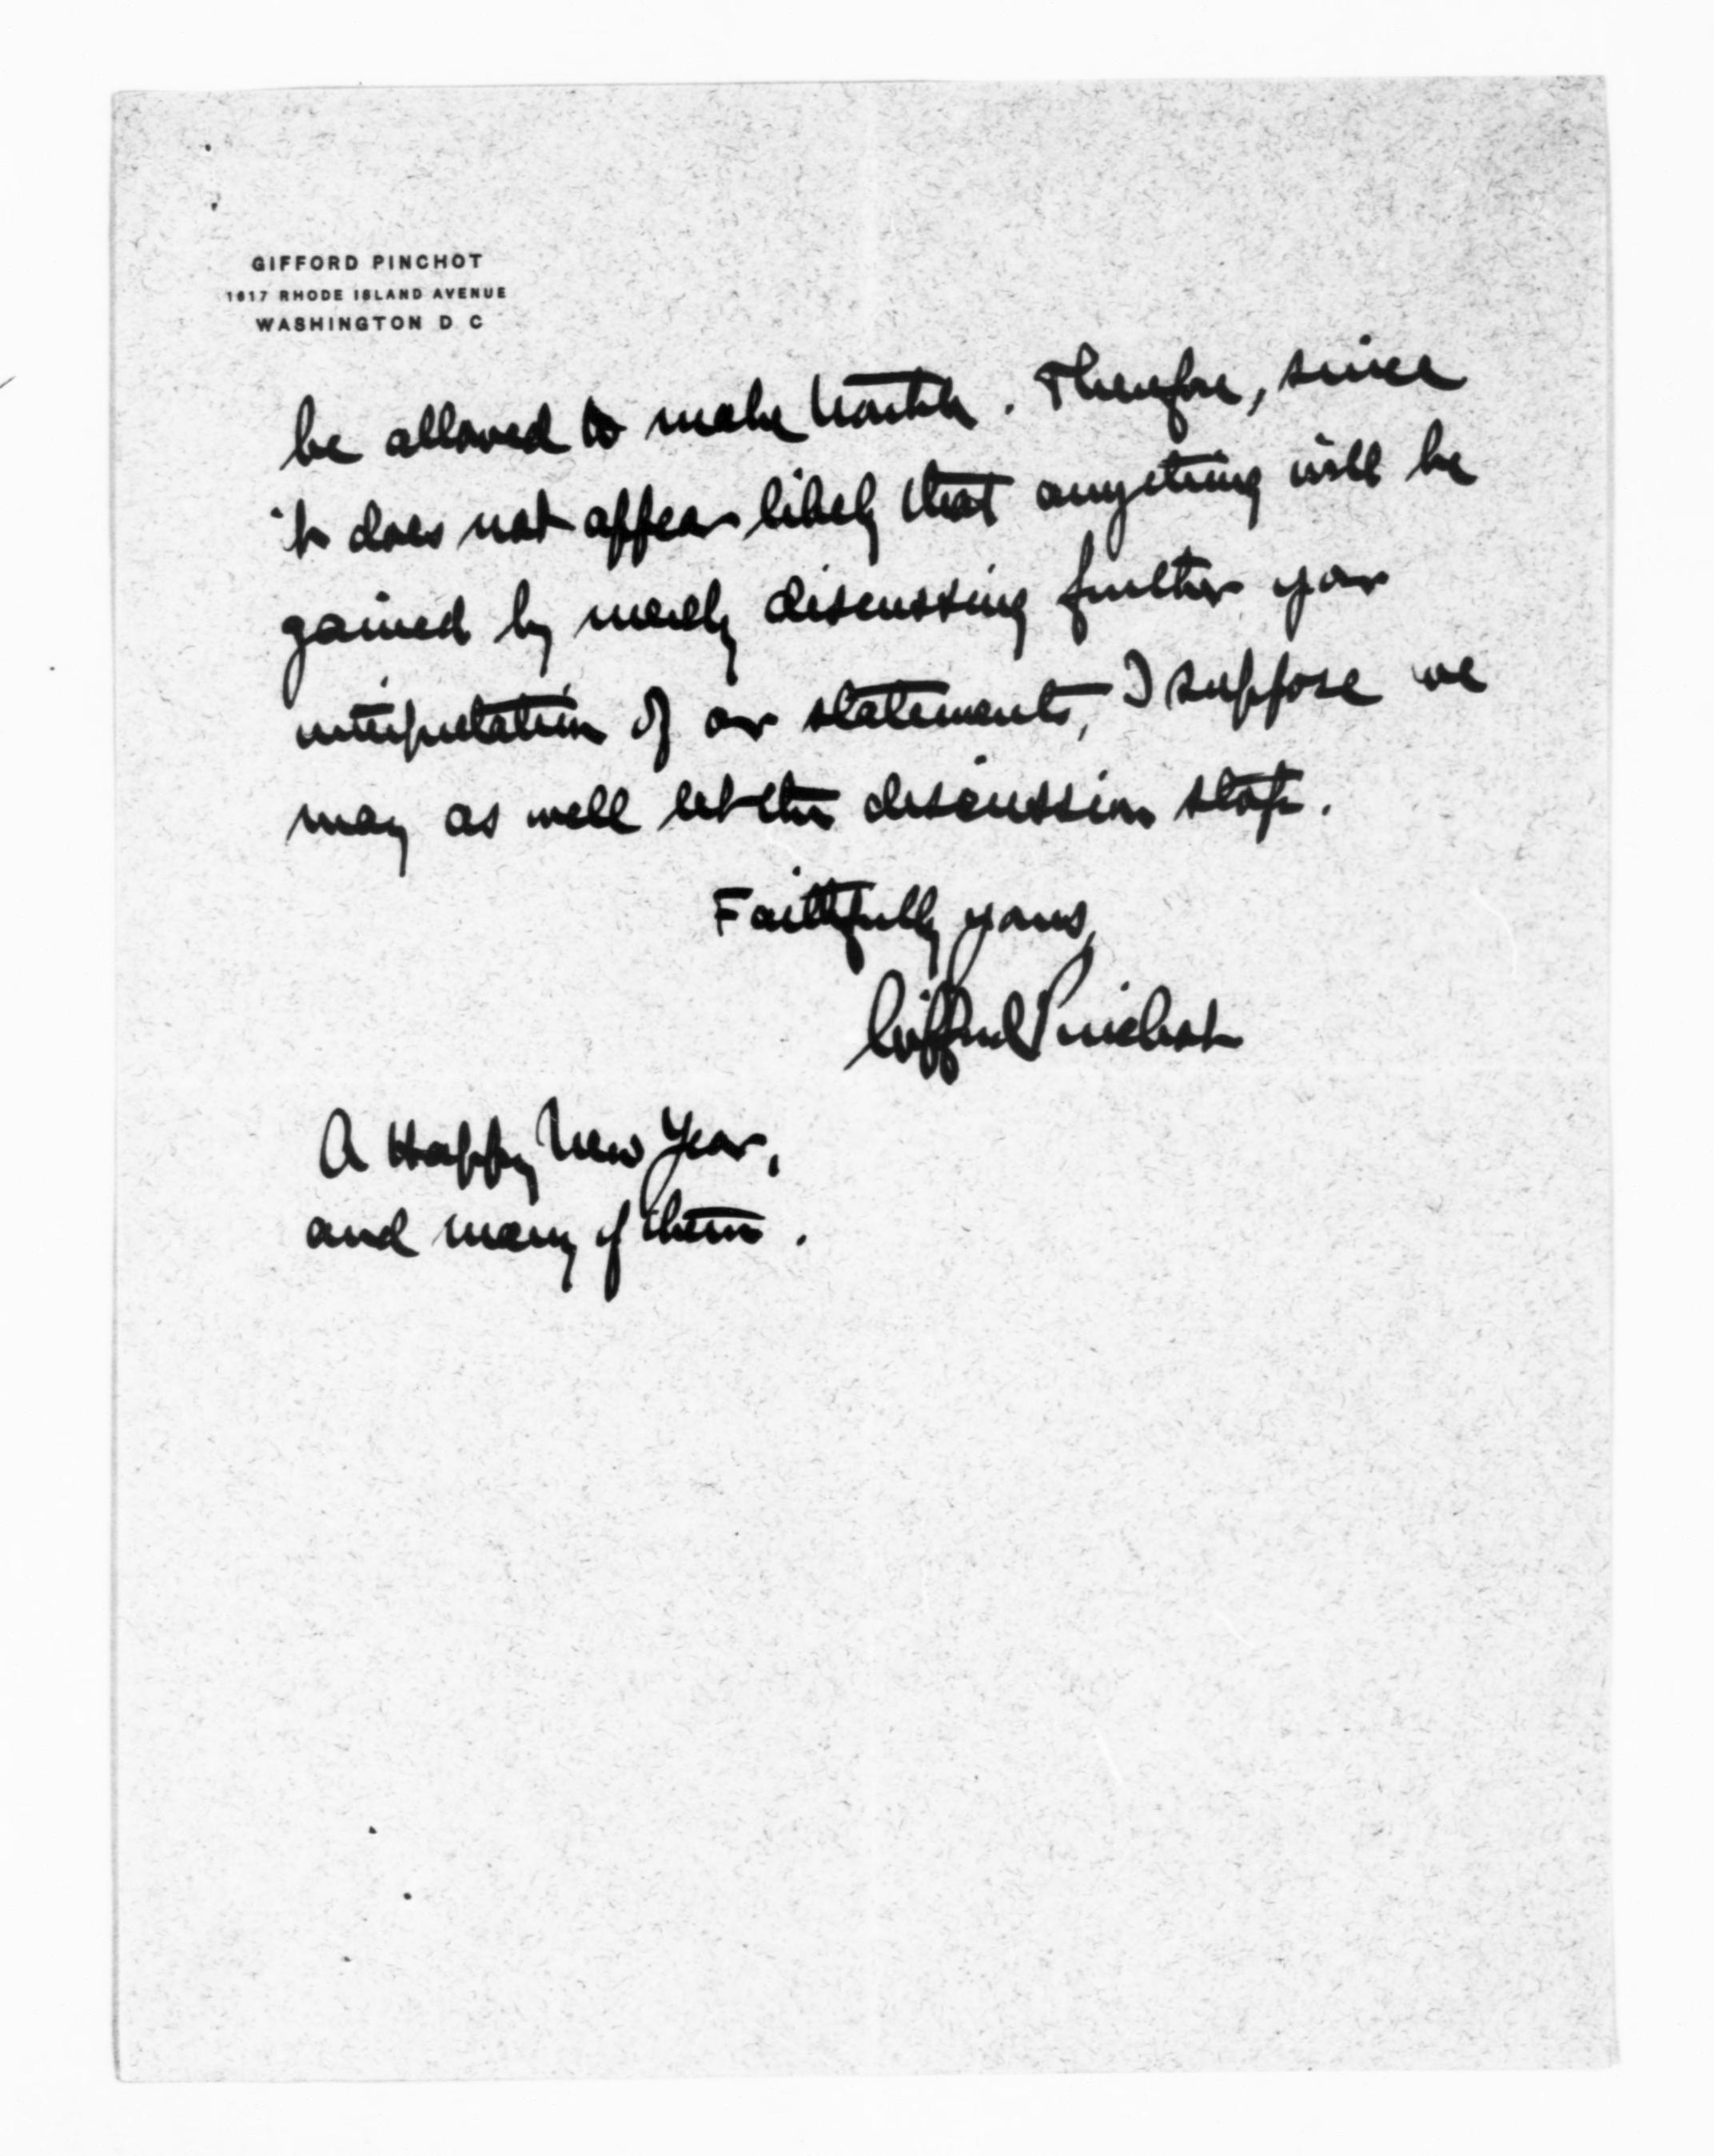 GIFFORD PINCHOT
1617 RHODE ISLAND AVENUE
WASHINGTON D C
be allowed to make trouble. Therefore, since
it does not appear likely that anything will be
gained by merely discussing further your
interpretation of our statements, I suppose we
may as well let the discussion stop.
Faithfully yours,
Gifford Pinchot
A Happy New Year,
and many of them.